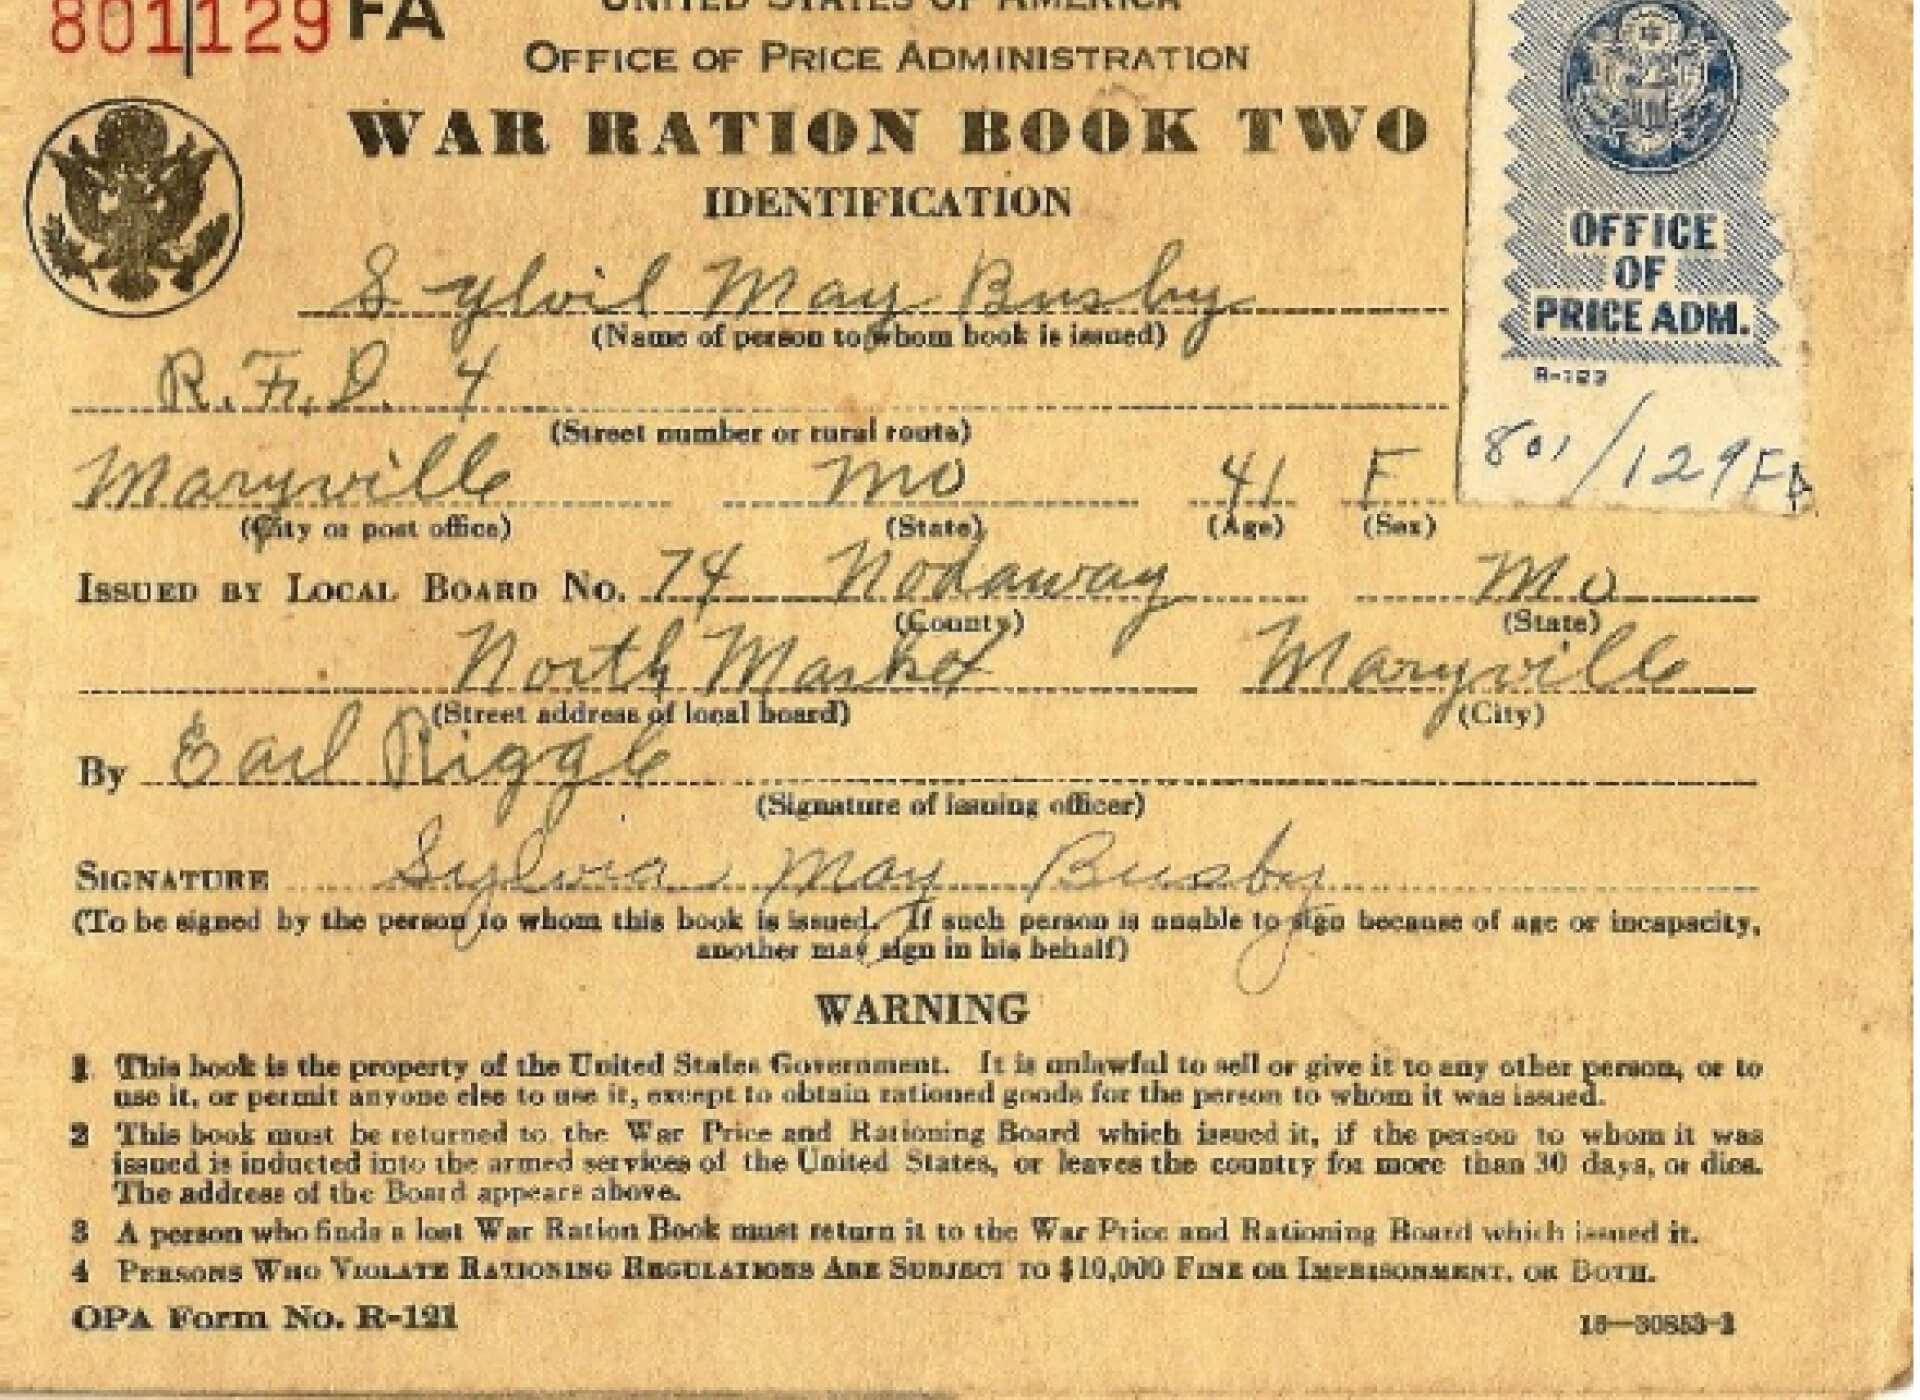 801129 FA
UNITED STATES OF AMERICA
OFFICE OF PRICE ADMINISTRATION
WAR RATION BOOK TWO
IDENTIFICATION
OFFICE
OF
PRICE ADM.
R-123
801/129FA
Sylvil May Busby
(Name of person to whom book is issued)
R.F.D. 4
(Street number or rural route)
Maryville Mo 41 F
(City or post office) (State) (Age) (Sex)
ISSUED BY LOCAL BOARD NO. 74 Nodaway Mo
(County) (State)
North Market Maryville
(Street address of local board) (City)
By Earl Riggle
(Signature of issuing officer)
SIGNATURE Sylvia May Busby
(To be signed by the person to whom this book is issued. If such person is unable to sign because of age or incapacity,
another may sign in his behalf)
WARNING
1 This book is the property of the United States Government. It is unlawful to sell or give it to any other person, or to
use it, or permit anyone else to use it, except to obtain rationed goods for the person to whom it was issued.
2 This book must be returned to the War Price and Rationing Board which issued it, if the person to whom it was
issued is inducted into the armed services of the United States, or leaves the country for more than 30 days, or dies.
The address of the Board appears above.
3 A person who finds a lost War Ration Book must return it to the War Price and Rationing Board which issued it.
4 PERSONS WHO VIOLATE RATIONING REGULATIONS ARE SUBJECT TO $10,000 FINE OR IMPRISONMENT, OR BOTH.
OPA Form No. R-121
16—30853-1